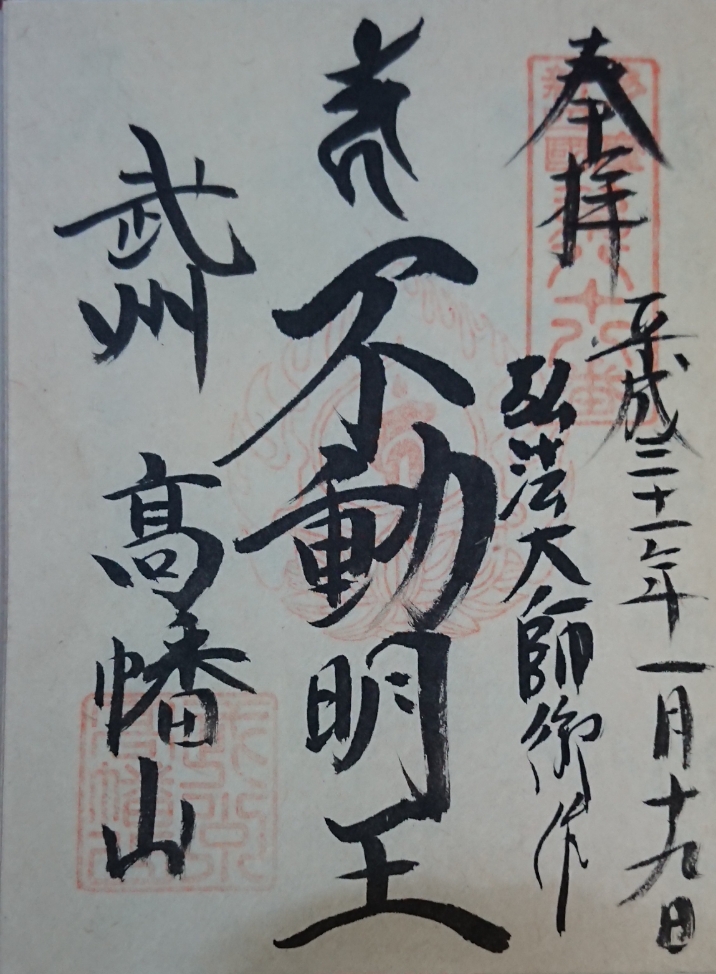 奉拝
平成三十一年一月十九日
弘法大師御作
不動明王
武州
高幡山